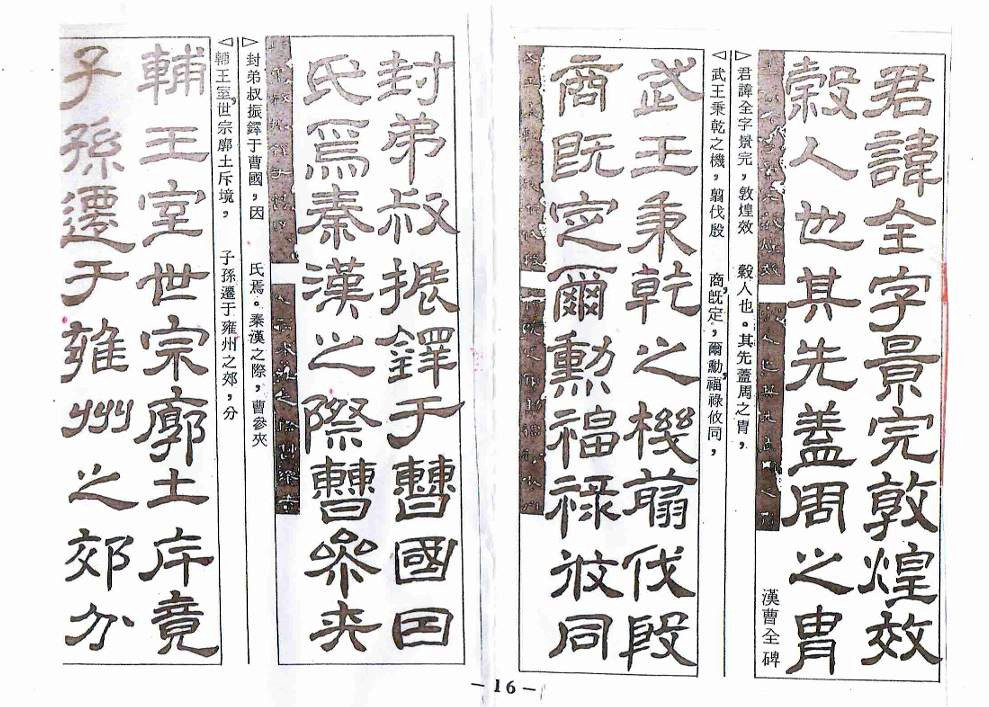 君諱全字景完敦煌效
穀人也其先蓋周之胄
漢曹全碑
▷君諱全字景完，敦煌效　穀人也。其先蓋周之胄，
◁武王秉乾之機，翦伐殷　商既定，爾勳福祿攸同，
武王秉乾之機翦伐殷
商既定爾勳福祿攸同
封弟叔振鐸于曹國因
氏焉秦漢之際曹參夾
▷封弟叔振鐸于曹國，因　氏焉。秦漢之際，曹參夾
◁輔王室，世宗廓土斥境，　子孫遷于雍州之郊，分
輔王室世宗廓土斥竟
子孫遷于雍州之郊分
－16－